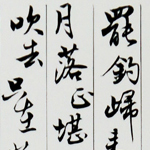 罷釣歸
月落正堪
吹去只在